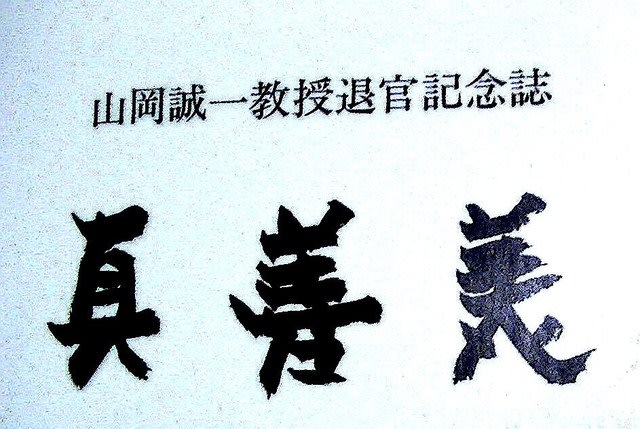 山岡誠一教授退官記念誌
真善美